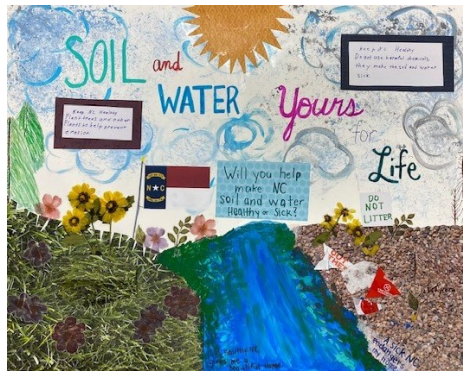 SOIL and
WATER Yours
for
Life
Keep NC Healthy
Do not use harmful chemicals
they make the soil and water
sick.
Keep NC Healthy
Plant trees and make
to help prevent
erosion.
N C
Will you help
make NC
soil and water
Healthy or Sick?
DO
NOT
LITTER
A SICK NC